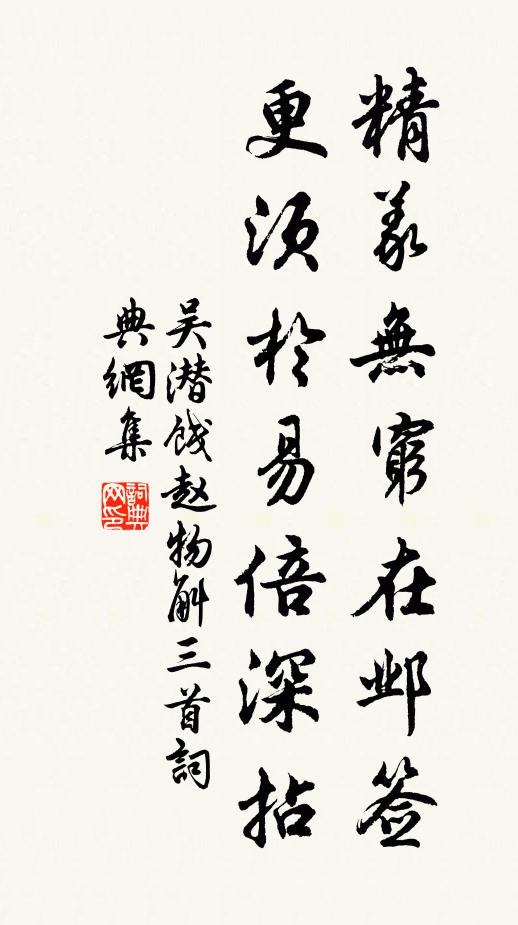 精义無窮在邺签
更须於易倍深拈
吴潜饯赵物斛三首詞
典網集
詞典网印